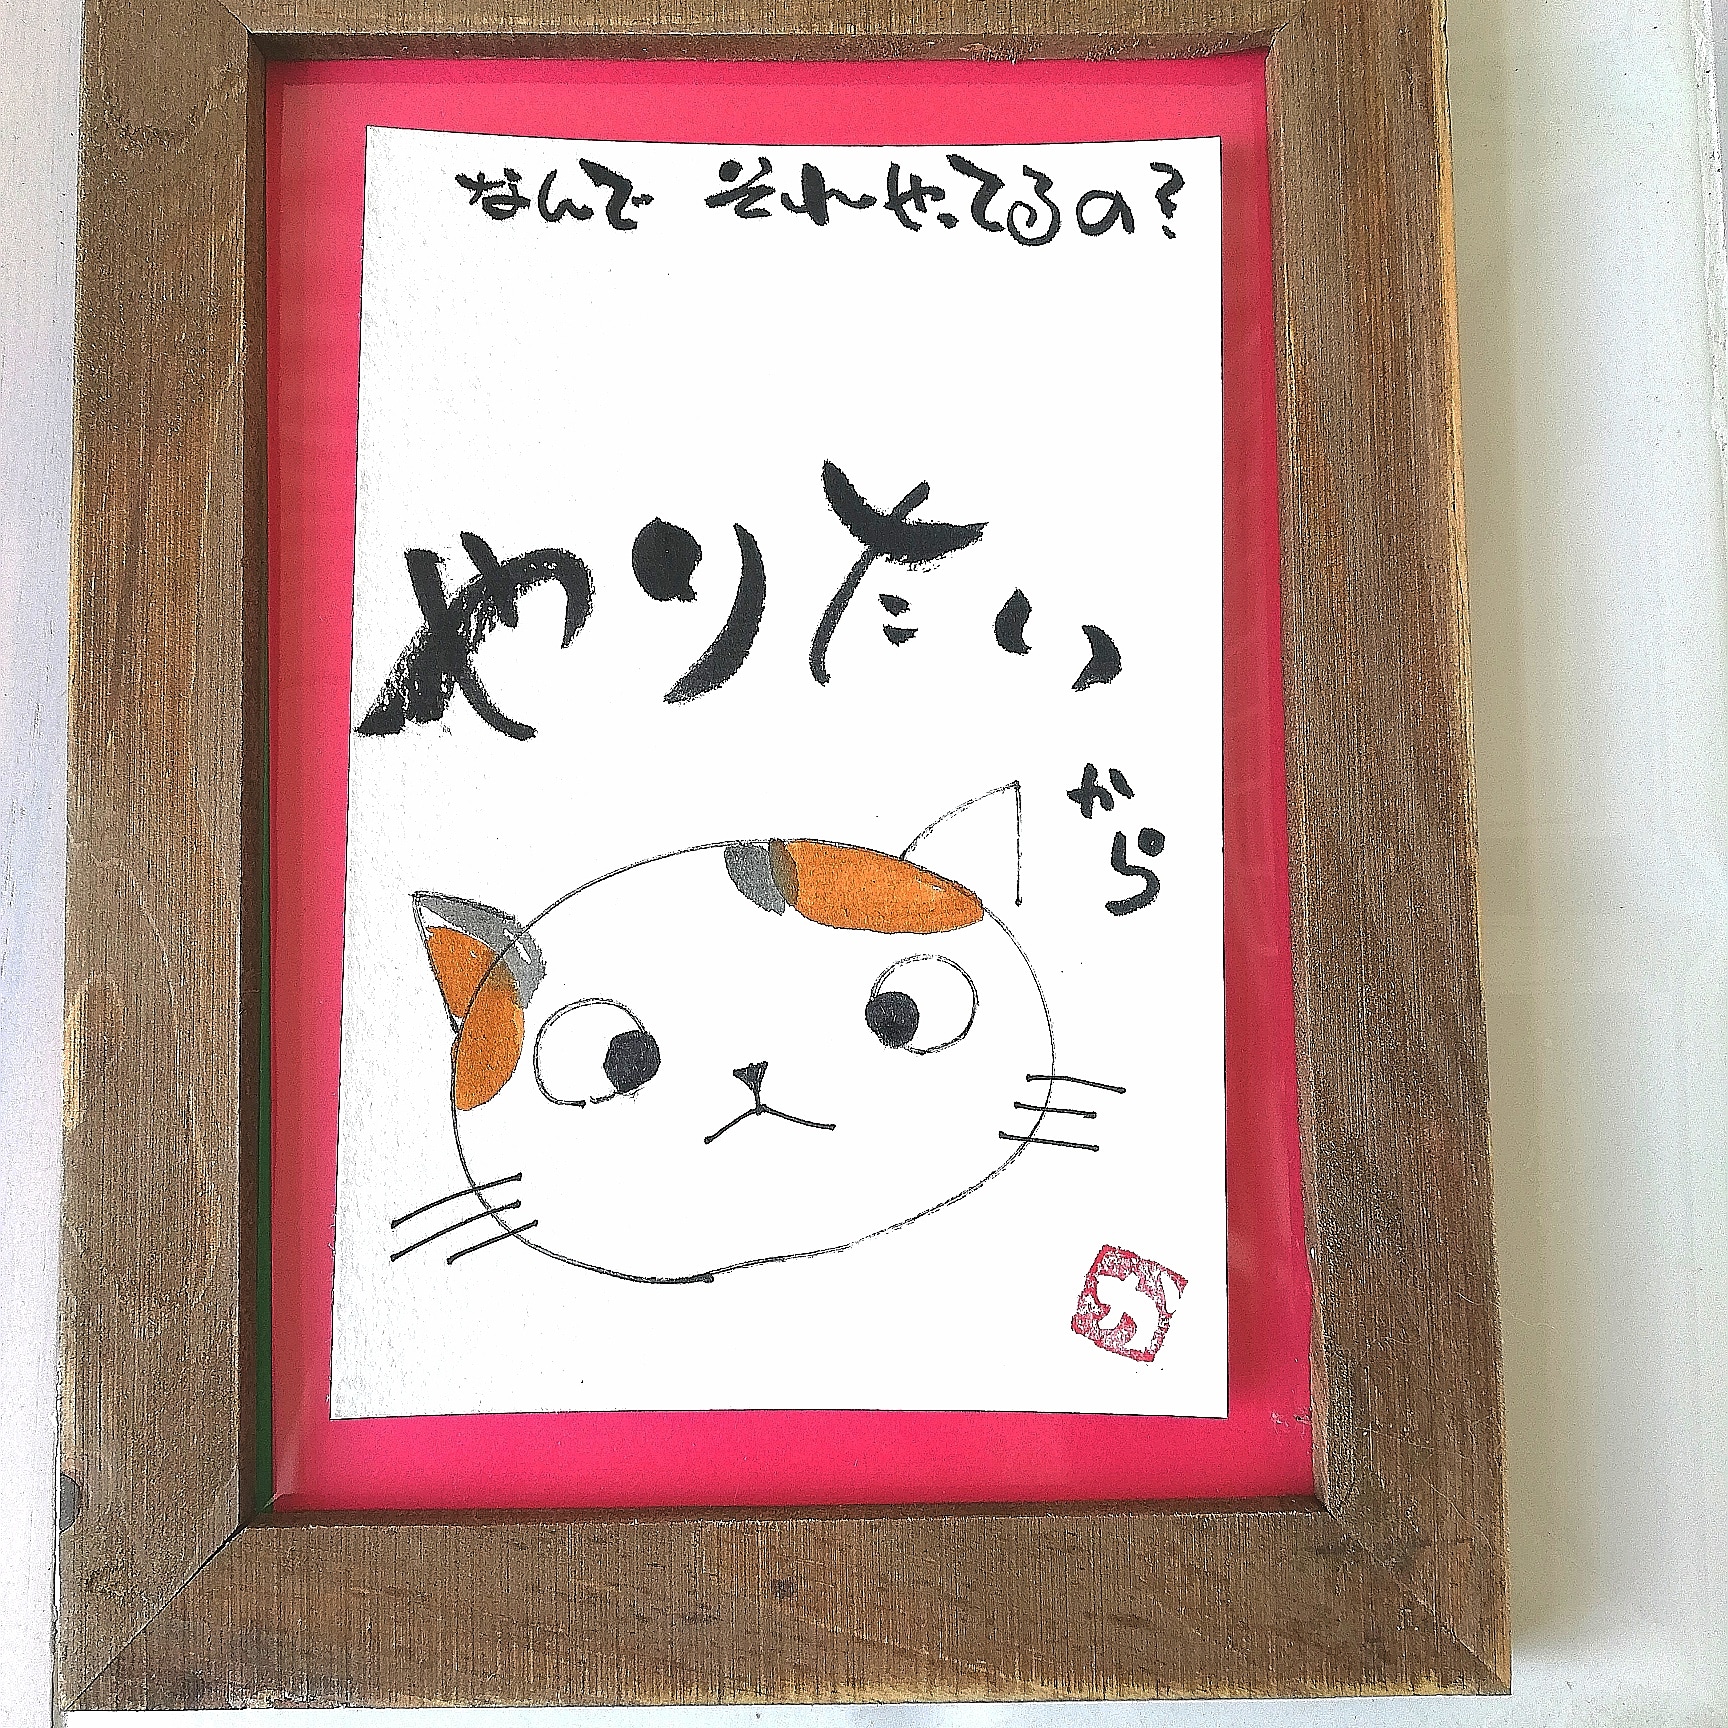 なんで それやってるの?
やりたい
から